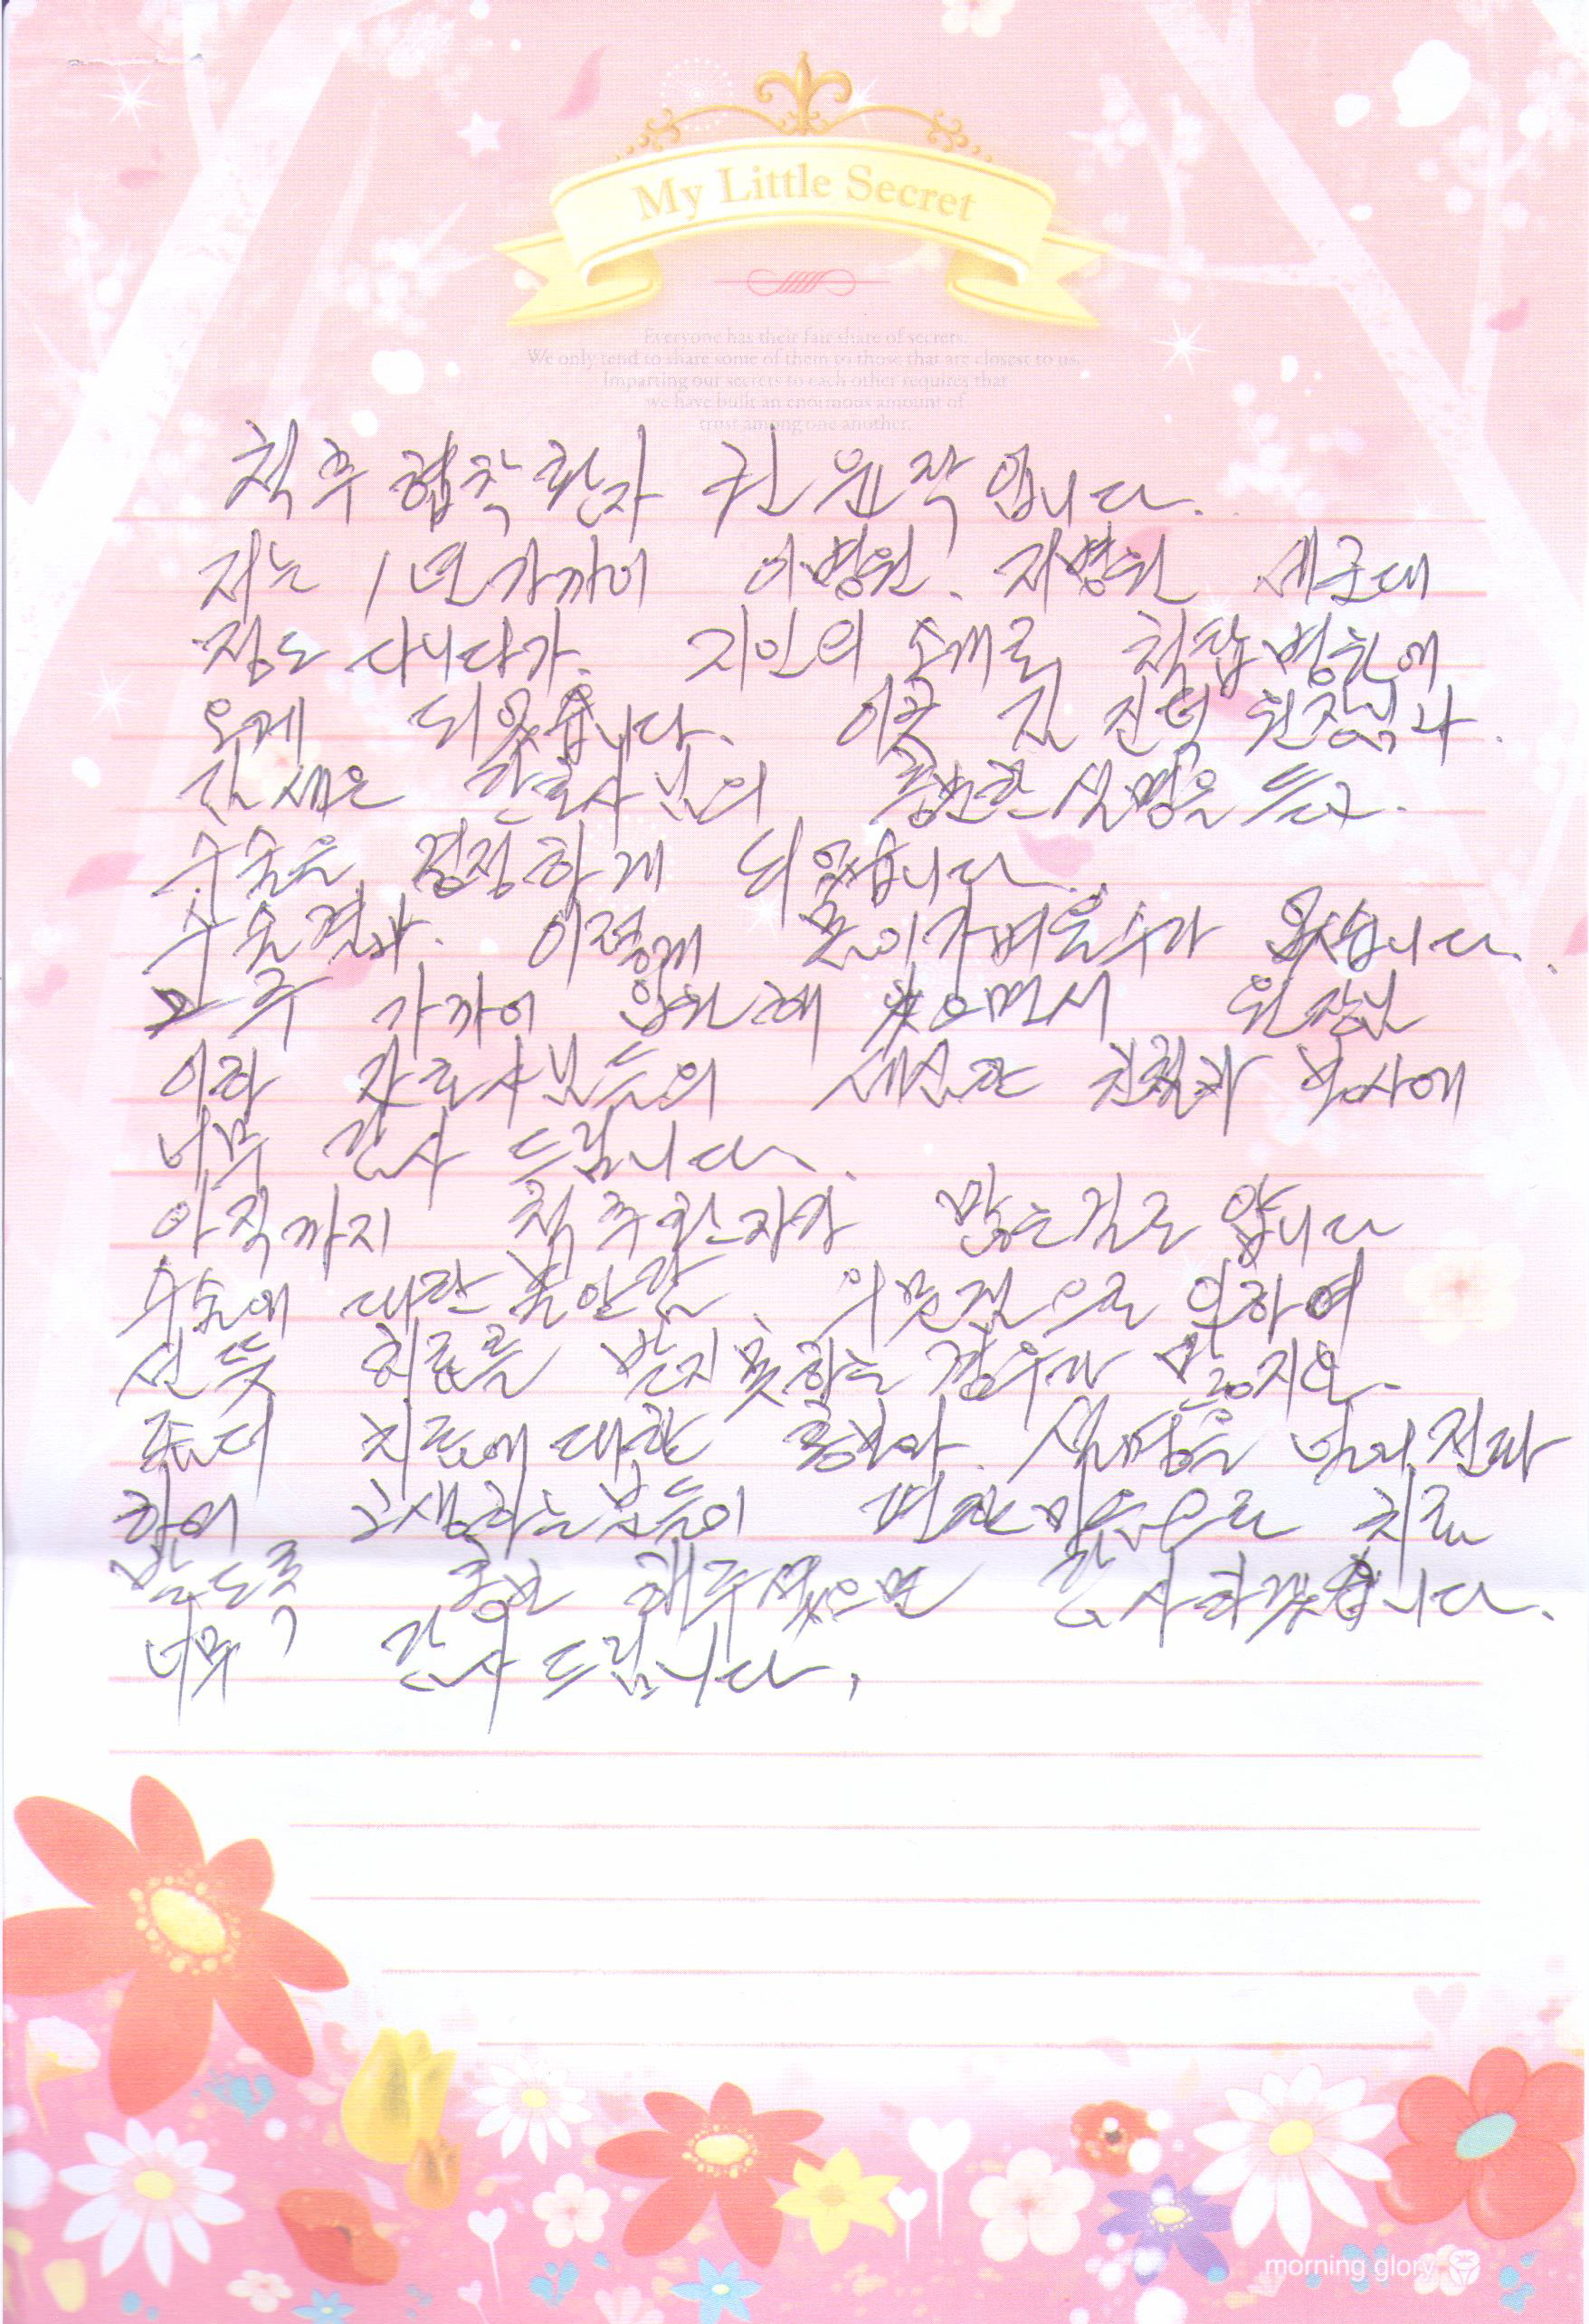 My Little Secret
Everyone has their fair share of secrets.
We only tend to share some of them to those that are closest to us.
Imparting our secrets to each other requires that
we have built an enormous amount of
trust among one another.
척추협착환자 권윤작입니다.
저는 1년가까이 이병원. 저병원 세군데
정도 다니다가. 지인의 소개로 척탑병원에
오게 되었습니다. 이곳 김 진덕 원장님과.
간호사님의 충분한 설명을 듣고.
수술을 결정하게 되었습니다.
수술결과. 이렇게 몸이가벼울수가 없습니다.
2주 가까이 입원해 있으면서 원장님
이랑 간호사님들의 세심한 친절과 봉사에
너무 감사 드립니다.
아직까지 척추환자가 많는걸로 압니다
수술에 대한 불안감. 의 하여
선뜻 치료를 받지못하는 경우가 많지요.
좀더 치료에대한 홍보와. 설명을 널리 전파
하여 고생하는분들이 편한마음으로 치료
받도록 홍보 해주셨으면 감사하겠습니다.
너무 감사 드립니다.
morning glory